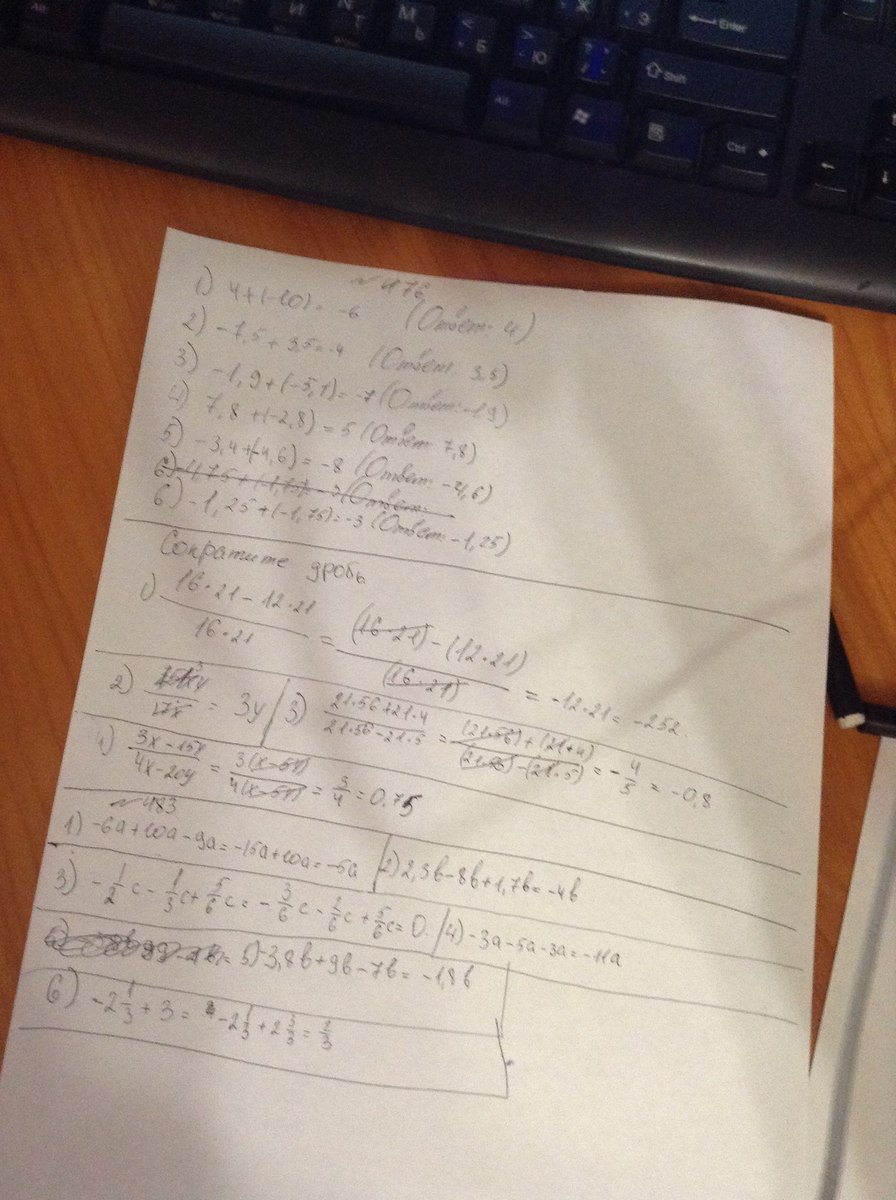 №476
1) 4+(-10) = -6 (Ответ: 4)
2) -7,5 + 3,5 = -4 (Ответ: 3,5)
3) -1,9 + (-5,1) = -7 (Ответ: -1,9)
4) 7,8 + (-2,8) = 5 (Ответ: 7,8)
5) -3,4 + (-4,6) = -8 (Ответ: -4,6)
6) -1,25 + (-1,75) = -3 (Ответ: -1,25)
Сократите дробь
1) 16·21 - 12·21 / 16·21 = (16·21) - (12·21) / (16·21) = -12·21 = -252.
2) 17x = 3y 3) 21·56+21·4 / 21·56-21·5 = (21·56)+(21+4) / (21·56)-(21·5) = -4/5 = -0,8
4) 3x-15y / 4x-20y = 3(x-5y) / 4(x-5y) = 3/4 = 0,75
№483
1) -6a+10a-9a = -15a+10a = -5a 2) 2,3b-8b+1,7b = -4b
3) -1/2 c - 1/3 c + 5/6 c = -3/6 c - 2/6 c + 5/6 c = 0. 4) -3a-5a-3a = -11a
5) -3,8b+9b-7b = -1,8b
6) -2 1/3 + 3 = -2 1/3 + 2 3/3 = 2/3
Enter
Shift
Alt
Ctrl